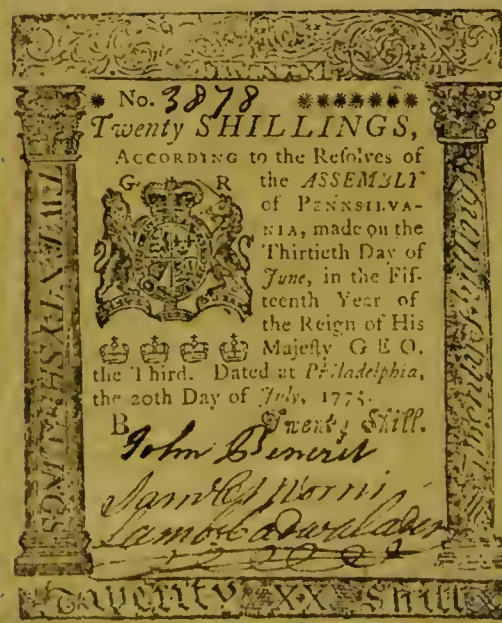 No. 3878
Twenty SHILLINGS,
ACCORDING to the Reſolves of
G R the ASSEMBLY
of PENNSILVA-
NIA, made on the
Thirtieth Day of
June, in the Fif-
teenth Year of
the Reign of His
Majeſty GEO.
the Third. Dated at Philadelphia,
the 20th Day of July, 1775.
B Twenty Shill.
John
Saml C Morris
Lamb Cadwalader
TWENTY SHILLINGS
Twenty Shillings
Twenty XX Shill